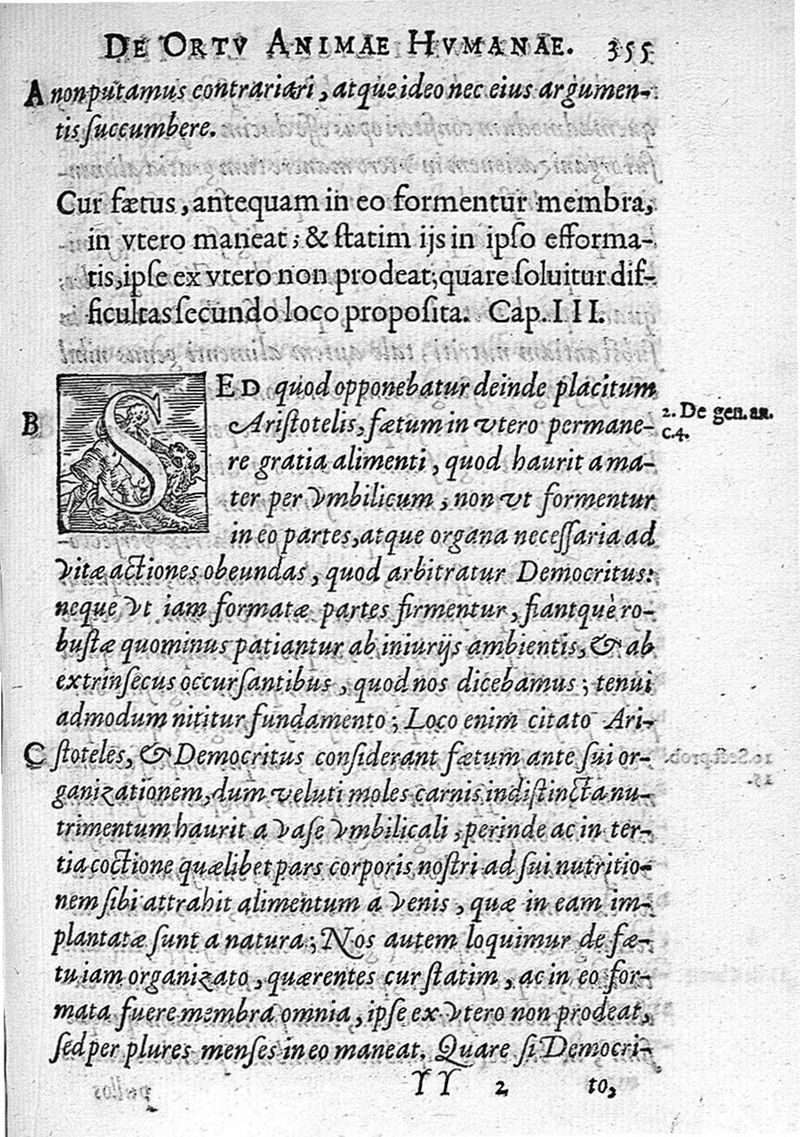 DE ORTV ANIMAE HVMANAE. 355
A non putamus contrariari, atque ideo nec eius argumen-
tis ſuccumbere.
Cur fætus, antequam in eo formentur membra,
in vtero maneat; & ſtatim ijs in ipſo efforma-
tis, ipſe ex vtero non prodeat; quare ſoluitur dif-
ficultas ſecundo loco propoſita. Cap. III.
SED quod opponebatur deinde placitum
B Ariſtotelis, fætum in vtero permane-
2. De gen. an.
c.4.
re gratia alimenti, quod haurit a ma-
ter per vmbilicum, non vt formentur
in eo partes, atque organa neceſſaria ad
vitæ actiones obeundas, quod arbitratur Democritus:
neque vt iam formatæ partes firmentur, fiantquè ro-
buſtæ quominus patiantur ab iniurijs ambientis, & ab
extrinſecus occurſantibus, quod nos dicebamus; tenui
admodum nititur fundamento; Loco enim citato Ari-
C ſtoteles, & Democritus conſiderant fætum ante ſui or-
ganizationem, dum veluti moles carnis indiſtincta nu-
trimentum haurit a vaſe vmbilicali, perinde ac in ter-
tia coctione quælibet pars corporis noſtri ad ſui nutritio-
nem ſibi attrahit alimentum a venis, quæ in eam im-
plantatæ ſunt a natura; Nos autem loquimur de fæ-
tu iam organizato, quærentes cur ſtatim, ac in eo for-
mata fuere membra omnia, ipſe ex vtero non prodeat,
ſed per plures menſes in eo maneat. Quare ſi Democri-
YY 2 to,